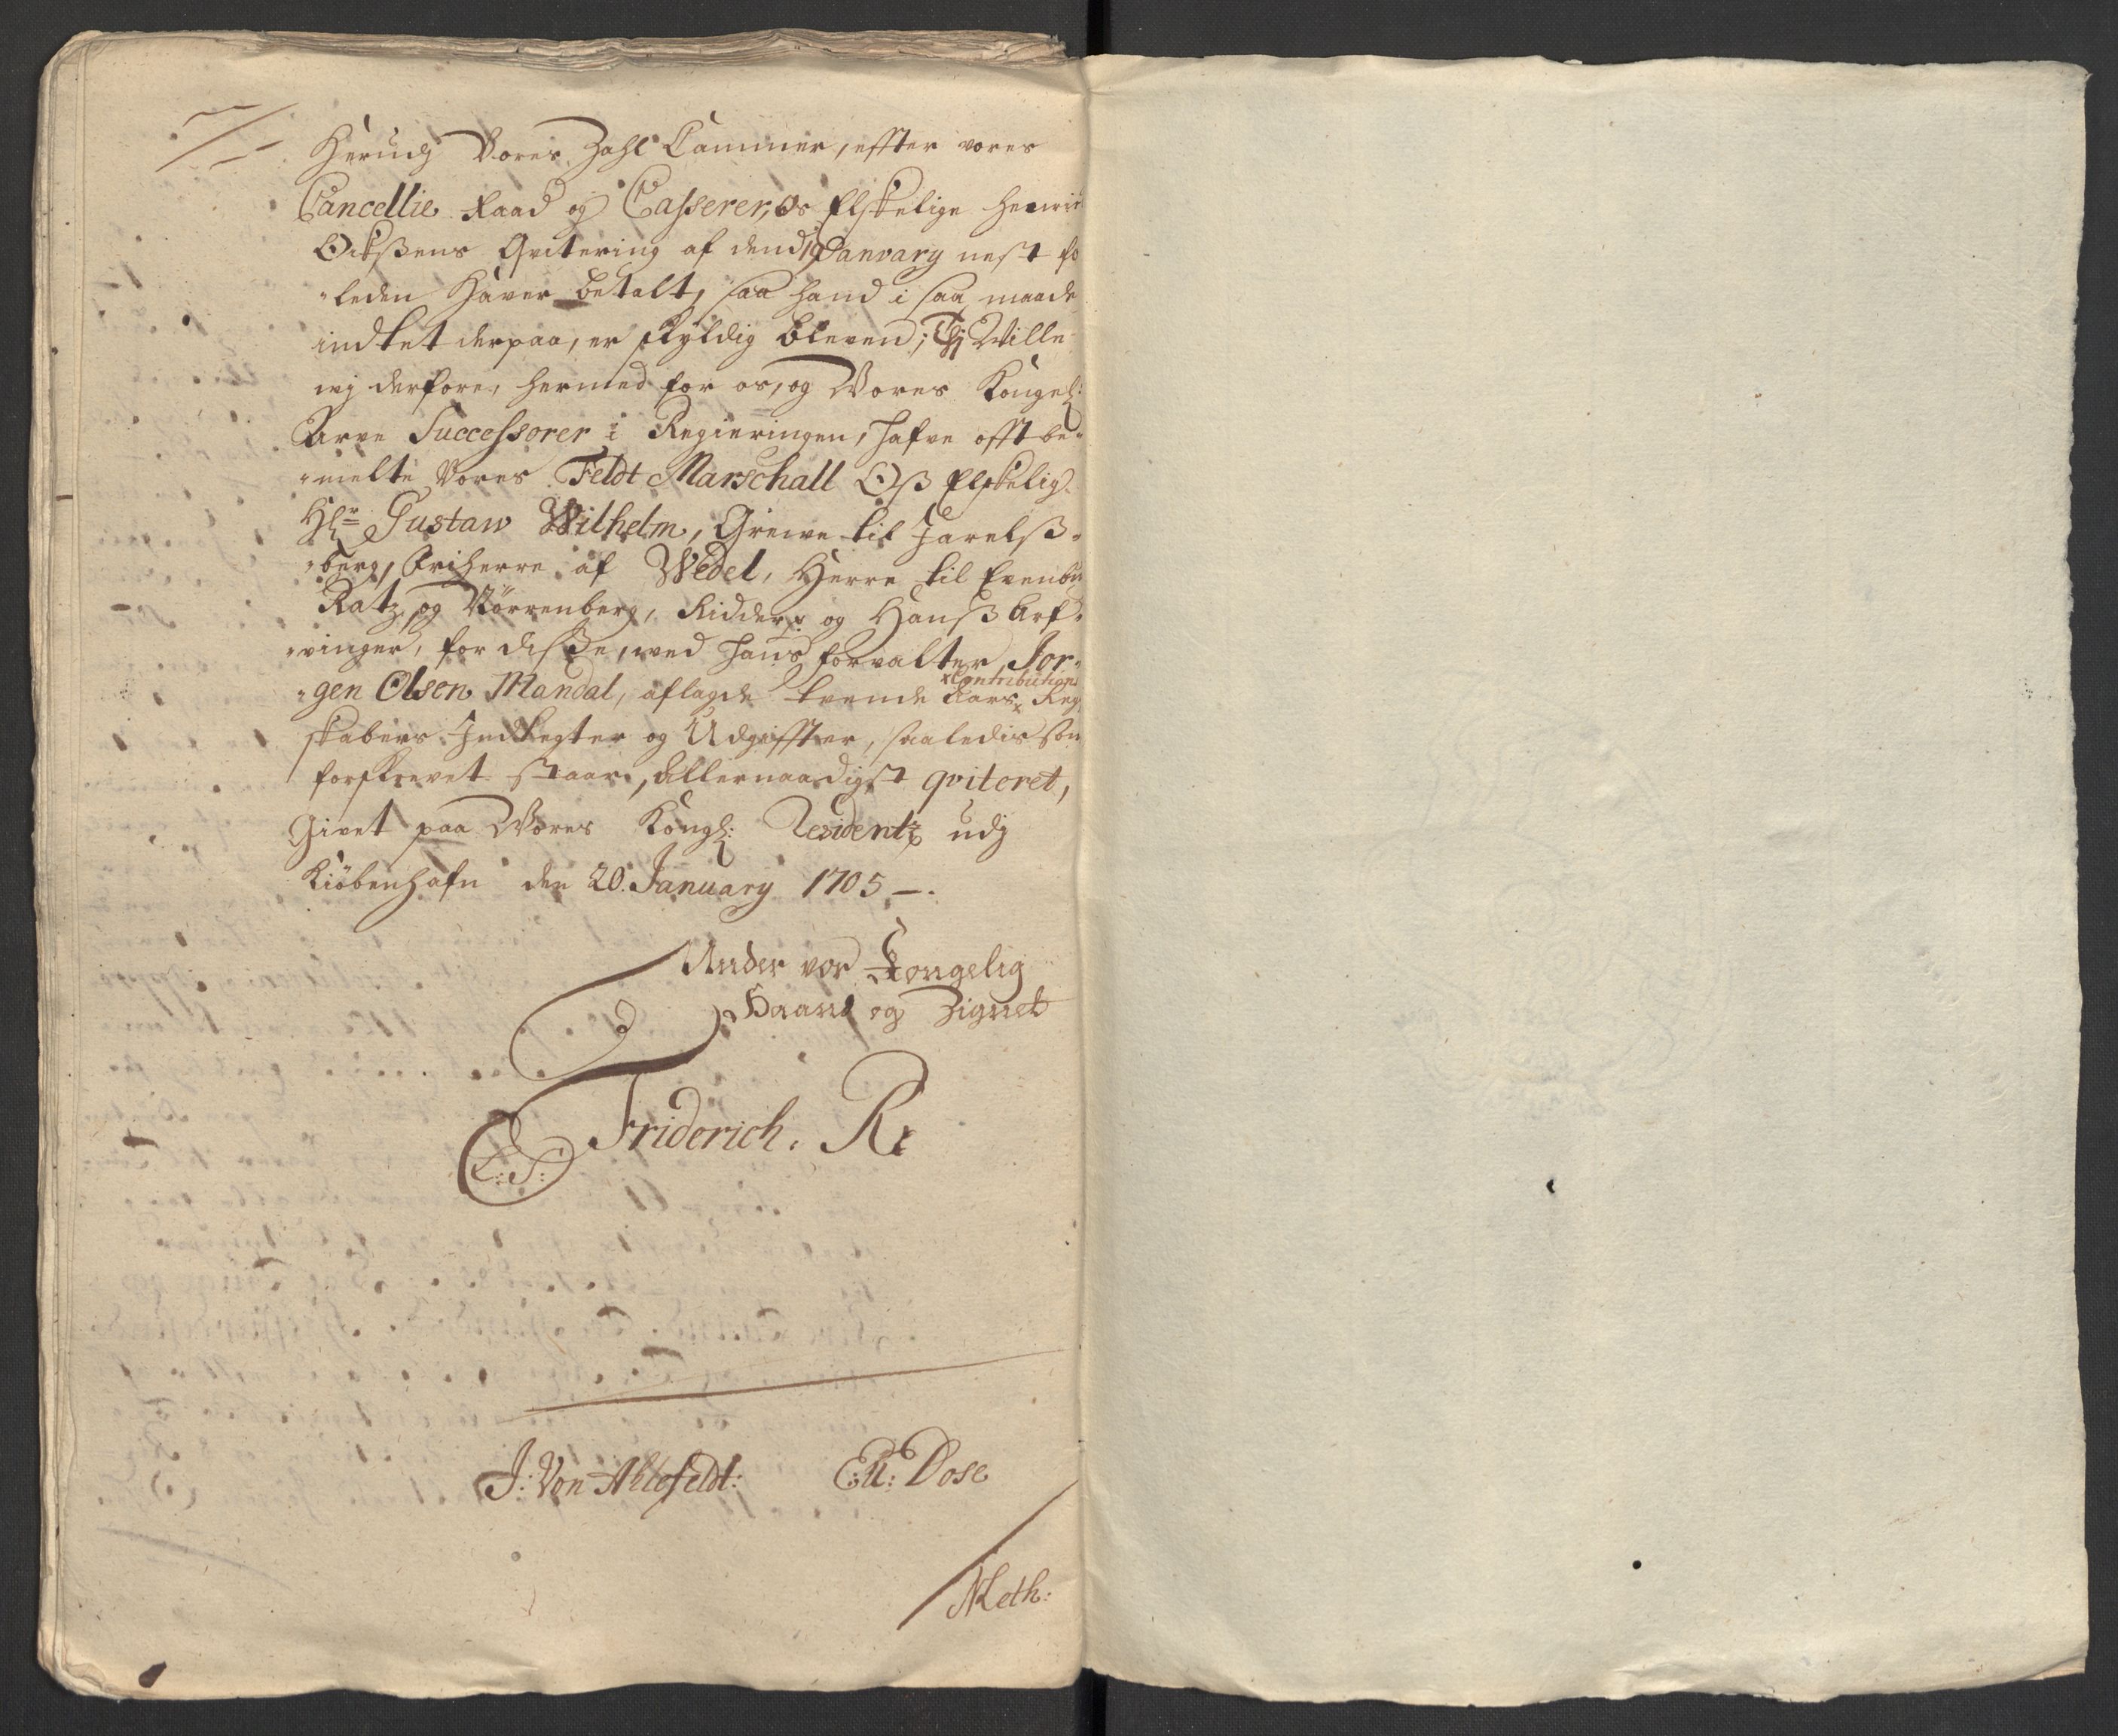 herudj Vores Zahl Cammer, effter vores
Cancellie Raad og Casserer, Os Elskelige Henric
Ockssens Qvitering af dend 19 Janvary nest for
-leden haver betalt, saa hand i saa maade
indtet derpaa, er skyldig bleven; Thj Ville
wj derfore, hermed for os, og Vores Kongel:
Arve Successorer i Regieringen, hafve offtbe-
-melte Vores Feldt Marschall Oß Elskelig
Hr Gustaw Wilhelm, Grewe til Jarelß-
-berg, Friherre af Wedel, Herre til Evenbu
Ratz, og Nörrenberg, Ridder og Hanß Arf-
-vinger, for diße, ved hans forvalter, Jor-
-gen Olsen Mandal, aflagde tvende Aars Reg
x Contributions
skabers Indtegter og Udgiffter, saaledis som
forskrevet staar, Allernaadigst qviteret,
Givet paa Vores Kongl: Residentz udj
Kiöbenhafn den 20. January 1705 -.
Under vor Kongelig
Haand og Zignet
Friderich. R:
L: S:
J: Von Ahlefeldt:
C: U: Dose